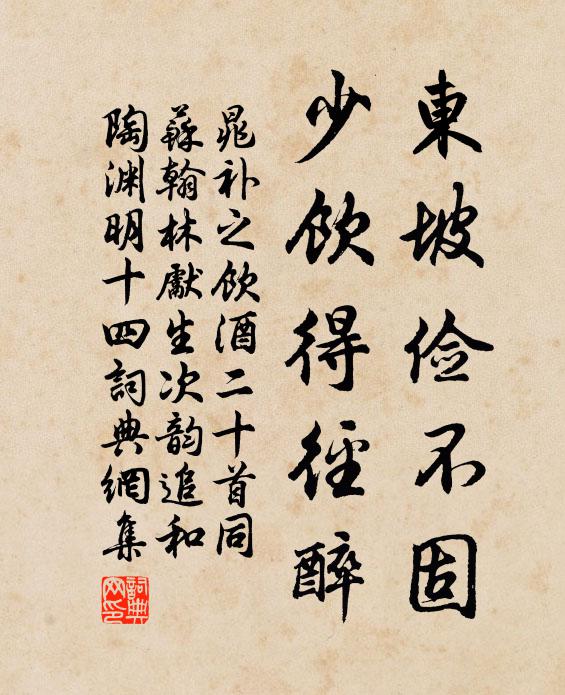 東坡儉不固
少飲得徑醉
晁补之飲酒二十首同
蘇翰林獻生次韵追和
陶渊明十四詞典網集
詞典
网印